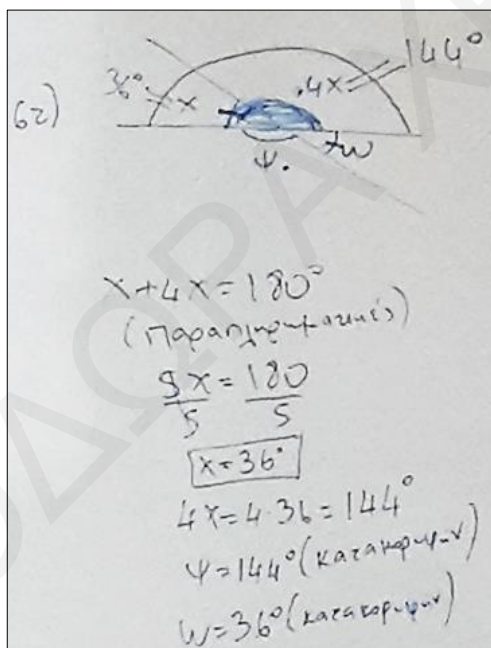 62)
36° x .4x 144°
ψ. w
x+4x=180°
(παραπληρωματικές)
5x = 180
5 5
x=36°
4x=4·36=144°
ψ=144° (κατακορυφήν)
w=36° (κατακορυφήν)